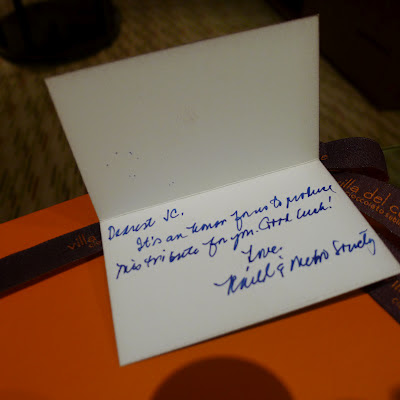 Dearest JC.
It's an honor for us to produce
this tribute for you. Good luck!
Love,
& Metro Society
ville del c
ville